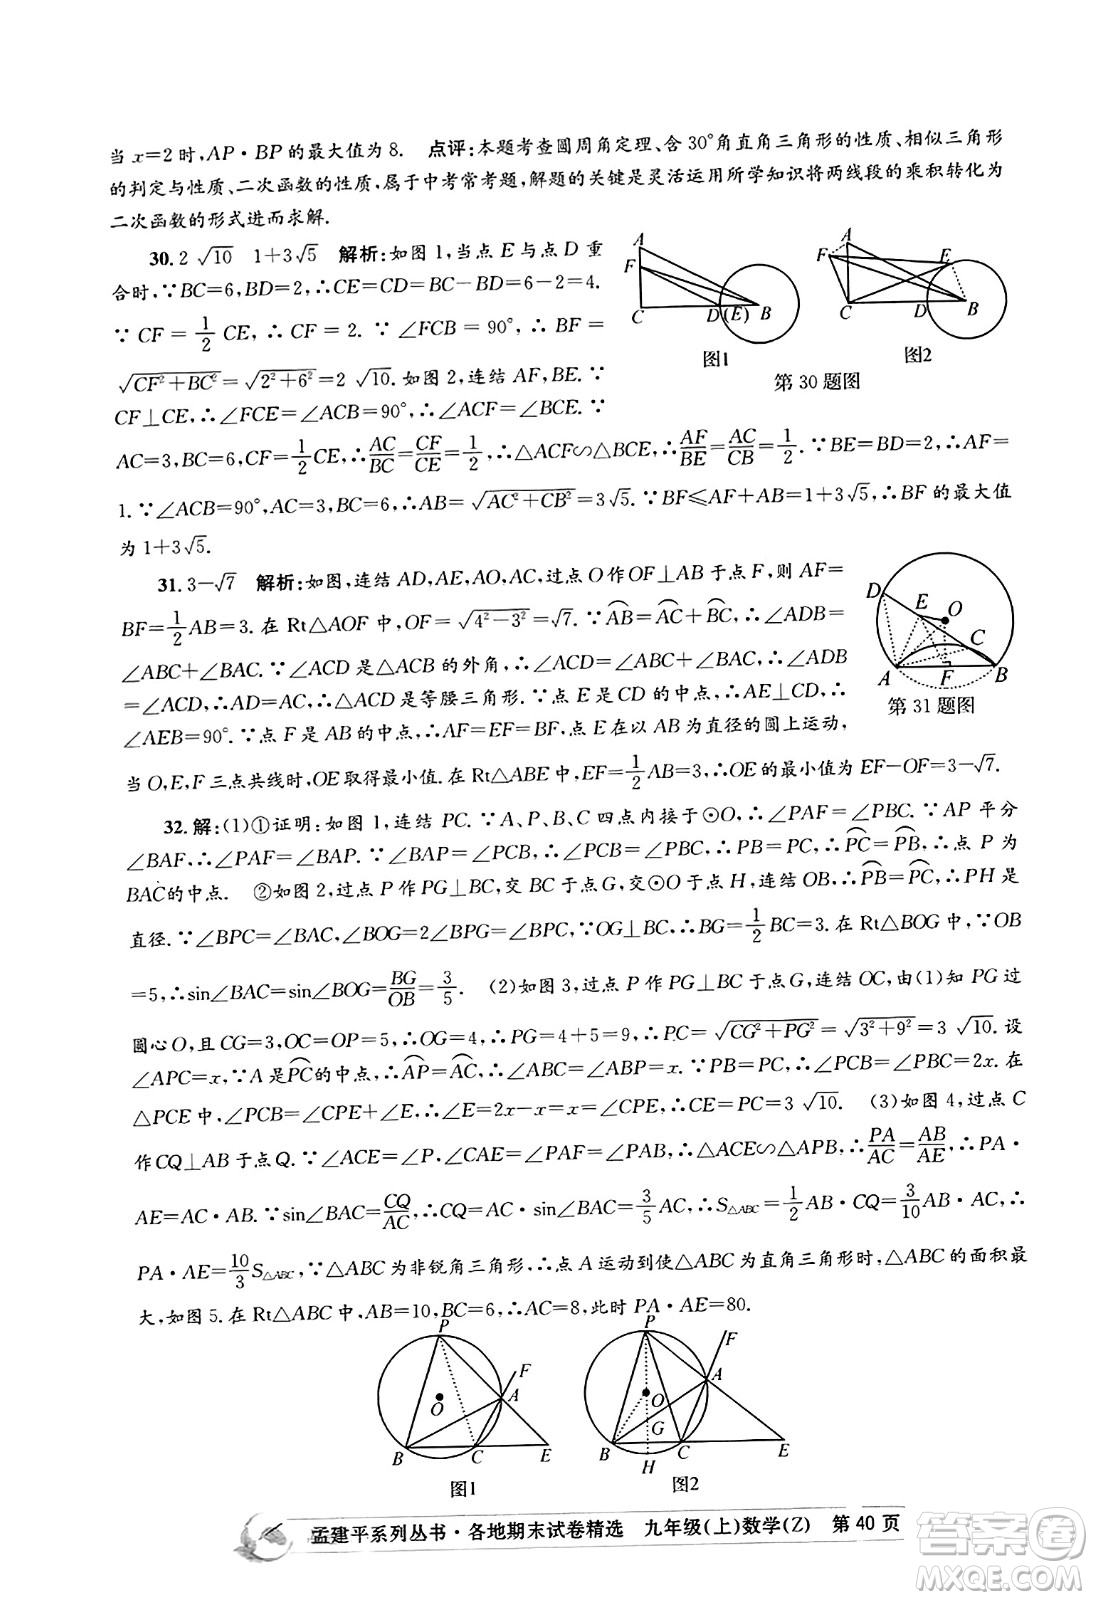 当 x=2 时,AP·BP 的最大值为 8. 点评:本题考查圆周角定理、含 30°角直角三角形的性质、相似三角形
的判定与性质、二次函数的性质,属于中考常考题,解题的关键是灵活运用所学知识将两线段的乘积转化为
二次函数的形式进而求解.
30. 2√10 1+3√5 解析:如图 1,当点 E 与点 D 重
合时,∵BC=6,BD=2,∴CE=CD=BC-BD=6-2=4.
∵ CF = 1/2 CE,∴ CF = 2. ∵ ∠FCB = 90°,∴ BF =
√(CF²+BC²)=√(2²+6²)=2√10. 如图 2,连结 AF,BE. ∵
CF⊥CE,∴∠FCE=∠ACB=90°,∴∠ACF=∠BCE. ∵
AC=3,BC=6,CF=1/2CE,∴AC/BC=CF/CE=1/2,∴△ACF∽△BCE,∴AF/BE=AC/CB=1/2. ∵BE=BD=2,∴AF=
1. ∵∠ACB=90°,AC=3,BC=6,∴AB=√(AC²+CB²)=3√5. ∵BF≤AF+AB=1+3√5,∴BF 的最大值
为 1+3√5.
A
F
C
D(E)
B
图1
A
F
E
C
D
B
图2
第 30 题图
31. 3-√7 解析:如图,连结 AD,AE,AO,AC,过点 O 作 OF⊥AB 于点 F,则 AF=
BF=1/2AB=3. 在 Rt△AOF 中,OF=√(4²-3²)=√7. ∵⌒AB=⌒AC+⌒BC,∴∠ADB=
∠ABC+∠BAC. ∵∠ACD 是△ACB 的外角,∴∠ACD=∠ABC+∠BAC,∴∠ADB
=∠ACD,∴AD=AC,∴△ACD 是等腰三角形. ∵点 E 是 CD 的中点,∴AE⊥CD,∴
∠AEB=90°. ∵点 F 是 AB 的中点,∴AF=EF=BF,∴点 E 在以 AB 为直径的圆上运动,
当 O,E,F 三点共线时,OE取得最小值. 在 Rt△ABE 中,EF=1/2AB=3,∴OE 的最小值为 EF-OF=3-√7.
D
E
O
C
A
F
B
第 31 题图
32. 解:(1)①证明:如图 1,连结 PC. ∵A、P、B、C 四点内接于⊙O,∴∠PAF=∠PBC. ∵AP 平分
∠BAF,∴∠PAF=∠BAP. ∵∠BAP=∠PCB,∴∠PCB=∠PBC,∴⌒PC=⌒PB,∴点 P 为
⌒BAC的中点. ②如图 2,过点 P 作 PG⊥BC,交 BC于点 G,交⊙O 于点 H,连结 OB,∴⌒PB=⌒PC,∴PH是
直径. ∵∠BPC=∠BAC,∠BOG=2∠BPG=∠BPC. ∵OG⊥BC,∴BG=1/2BC=3. 在 Rt△BOG 中,∵OB
=5,∴sin∠BAC=sin∠BOG=BG/OB=3/5. (2)如图 3,过点 P 作 PG⊥BC 于点 G,连结 OC,由(1)知 PG 过
圆心 O,且 CG=3,OC=OP=5,∴OG=4,∴PG=4+5=9,∴PC=√(CG²+PG²)=√(3²+9²)=3√10. 设
∠APC=x,∵A 是⌒PC的中点,∴⌒AP=⌒AC,∴∠ABC=∠ABP=∠APC=x,∴∠PCB=∠PBC=2x. 在
△PCE 中,∠PCB=∠CPE+∠E,∴∠E=2x-x=x=∠CPE,∴CE=PC=3√10. (3)如图 4,过点 C
作CQ⊥AB 于点 Q. ∵∠ACE=∠P,∠CAE=∠PAF=∠PAB,∴△ACE∽△APB,∴PA/AC=AB/AE,∴PA·
AE=AC·AB. ∵sin∠BAC=CQ/AC,∴CQ=AC·sin∠BAC=3/5AC,∴S△ABC=1/2AB·CQ=3/10AB·AC,∴
PA·AE=10/3S△ABC,∵△ABC 为非锐角三角形,∴点 A运动到使△ABC为直角三角形时,△ABC的面积最
大,如图 5. 在 Rt△ABC 中,AB=10,BC=6,∴AC=8,此时 PA·AE=80.
P
F
A
O
B
C
E
图1
P
F
A
O
G
B
C
E
H
图2
孟建平系列丛书·各地期末试卷精选 九年级(上)数学(Z) 第 40 页